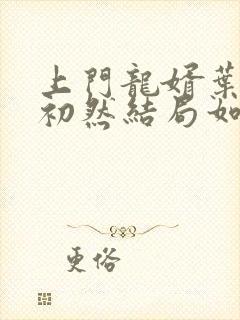 上門龍婿葉
初然結局如
更俗